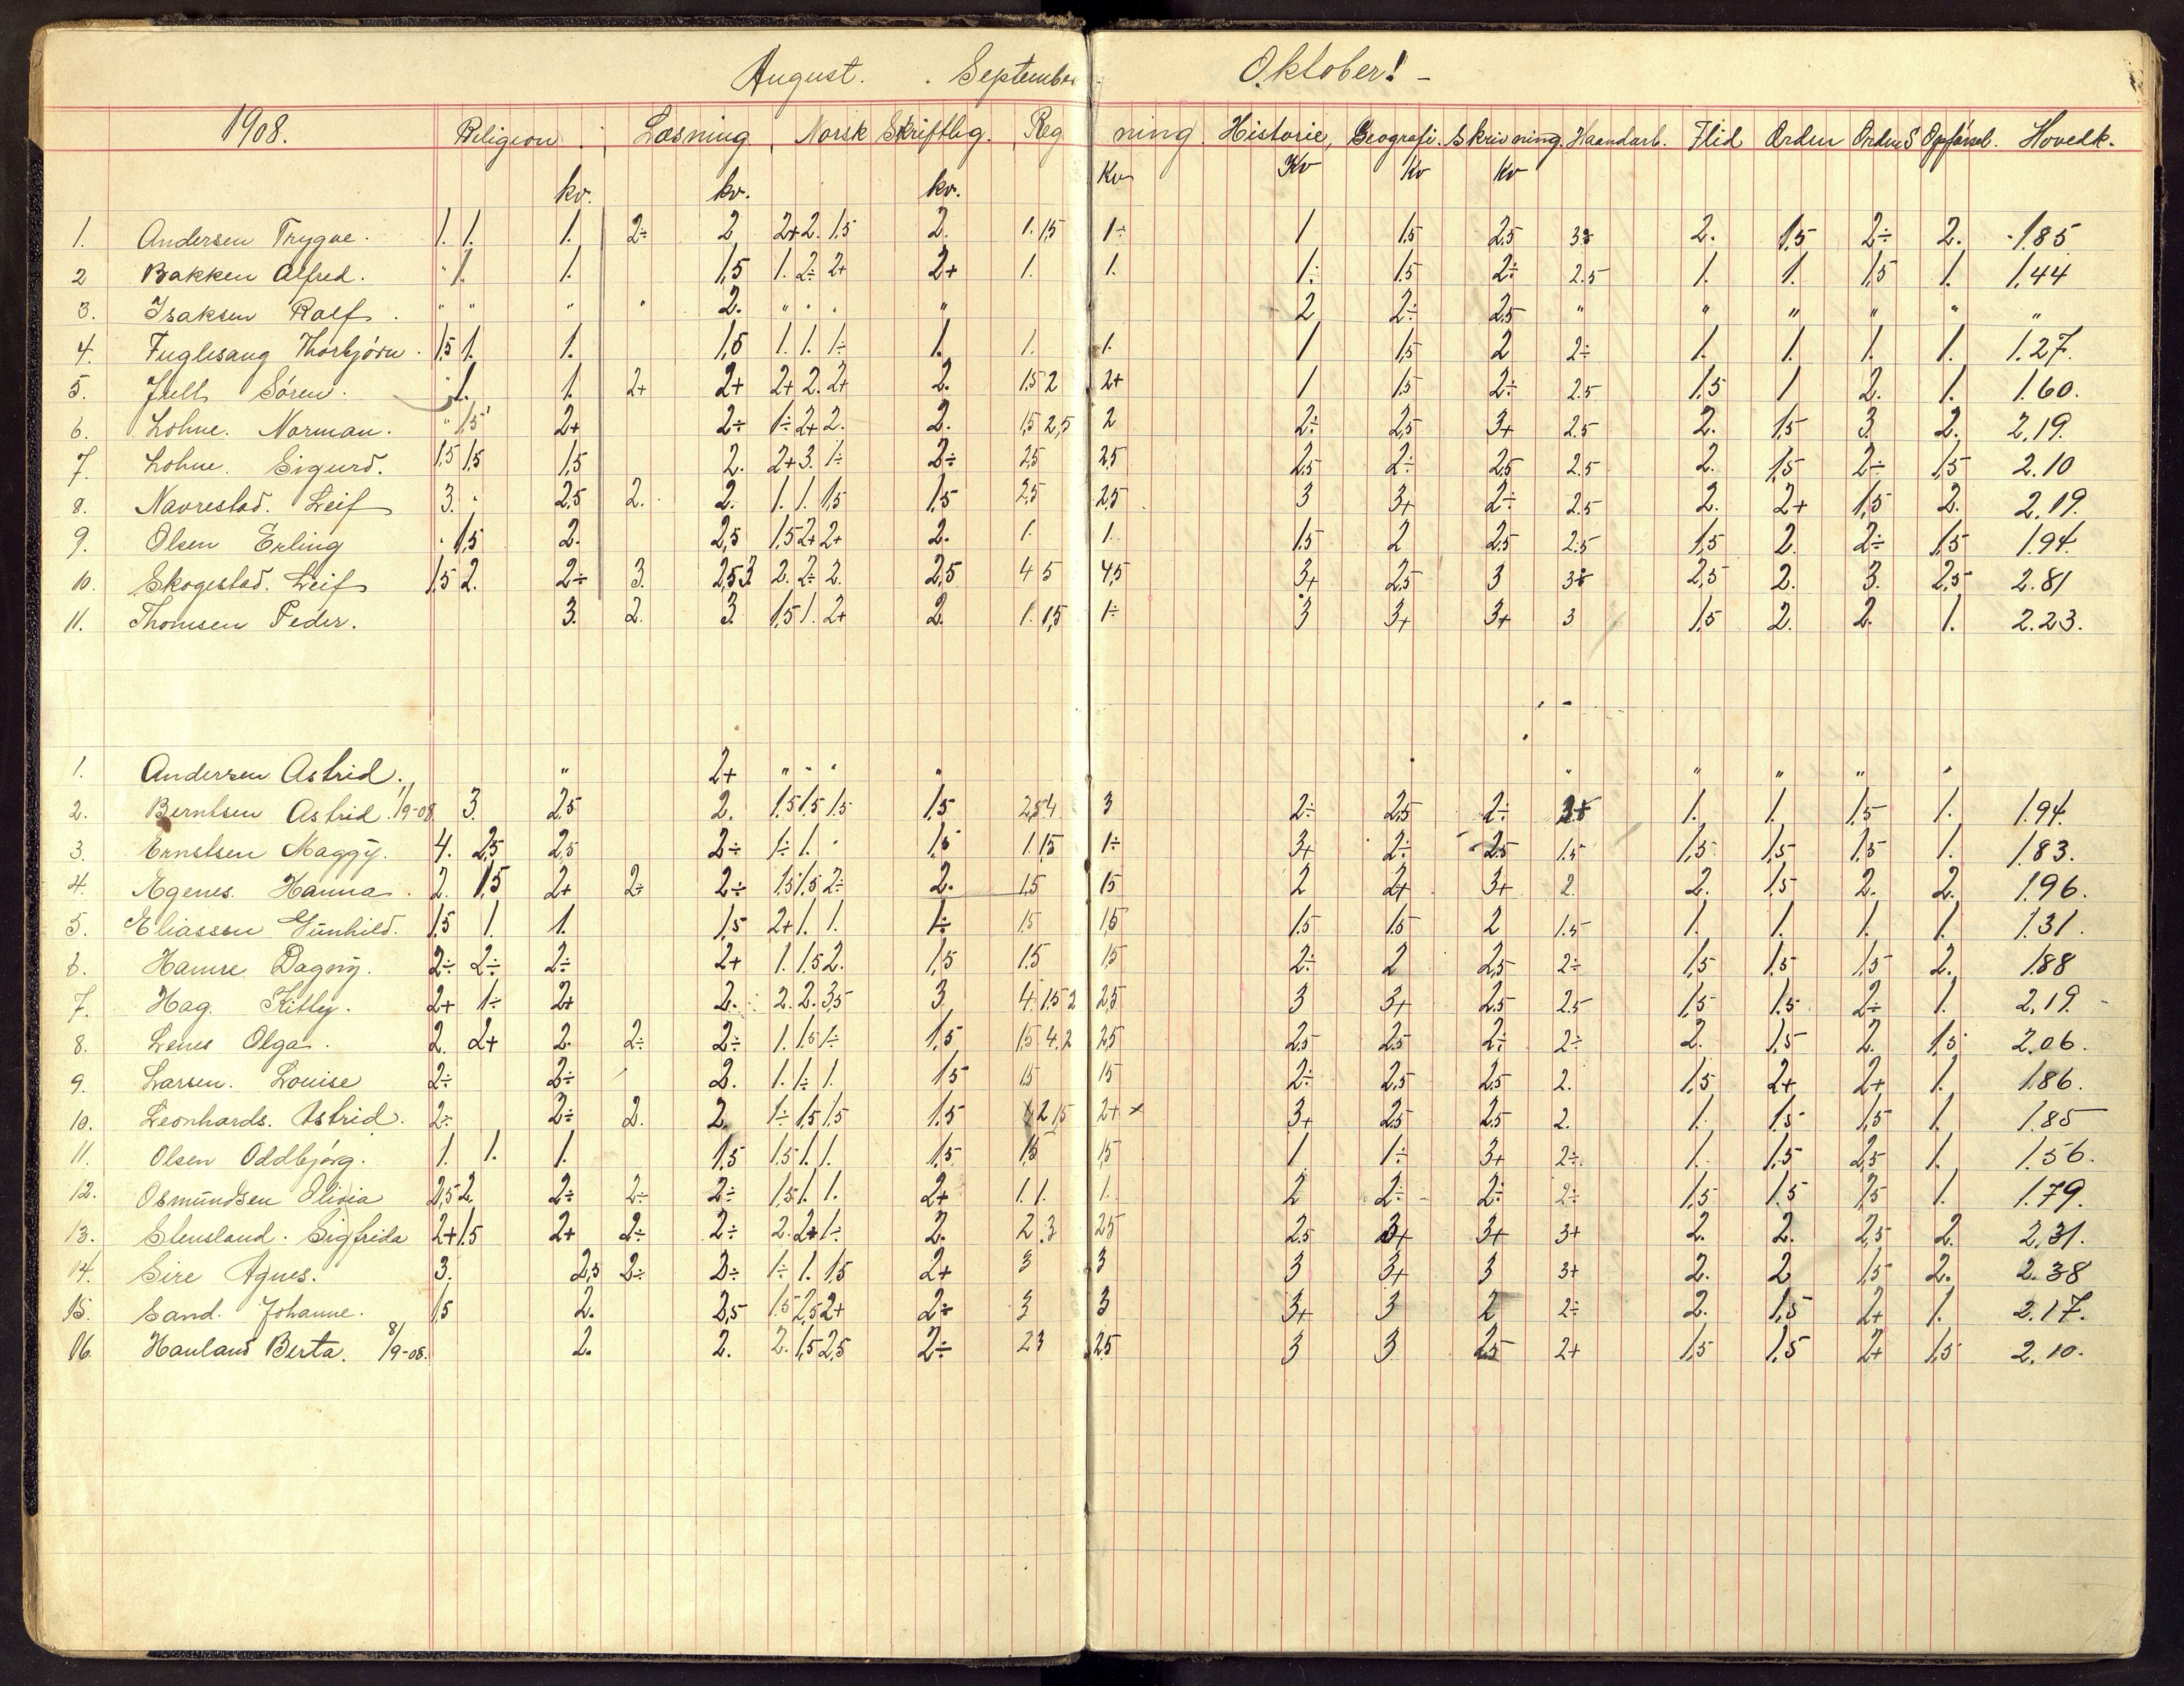 August. . September. Oktober! -
1908. Religion. Læsning Norsk Skriftlig. Regning. Historie, Geografi. Skrivning. Haandarb. Flid Orden OrdenS Opførsel. Hovedk.
kv. kv. kv. Kv Kv Kv Kv
1. Andersen Trygve. 1. 1. 1. 2÷ 2 2+ 2. 1,5 2. 1. 1,5 1÷ 1 1,5 2,5 2. 1,5 2÷ 2. 1.85
2 Bakken Alfred. " 1. 1. 1,5 1. 2÷ 2+ 2+ 1. 1. 1÷ 1.5 2÷ 2.5 1. 1. 1,5 1. 1,44
3. Isaksen Rolf. " " " " 2. " " " " 2 2÷ 2,5 " " " " " "
4. Fuglesang Thorbjørn. 1,5 1. 1. 1,5 1. 1. 1÷ 1. 1. 1. 1 1,5 2 2÷ 1. 1. 1. 1. 1.27.
5. Juell Sören. " 1. 1. 2+ 2+ 2+ 2. 2+ 2. 1,5 2 2+ 1 1.5 2÷ 2.5 1,5 1 2. 1. 1.60.
6. Lohne. Norman. " 1,5 2+ 2÷ 1÷ 2+ 2. 2. 1,5 2,5 2 2÷ 2,5 3+ 2.5 2. 1,5 3. 2. 2,19.
7. Lohne. Sigurd. 1,5 1,5 1,5 2. 2+ 3. 1÷ 2÷ 2,5 2,5 2,5 2÷ 2,5 2.5 2. 1,5 2÷ 1,5 2.10
8. Navrestad. Leif 3. " 2,5 2. 2. 1. 1. 1,5 1,5 2,5 2,5 3 3+ 2÷ 2.5 2. 2+ 1,5 2. 2,19.
9. Olsen Erling " 1,5 2. 2,5 1,5 2+ 2+ 2. 1. 1. 1.5 2 2,5 2.5 1,5 2. 2÷ 1,5 1.94.
10. Skogestad. Leif 1,5 2. 2÷ 3. 2,5 3. 2. 2÷ 2. 2,5 4 5 4,5 3+ 2,5 3 2,5 2. 3. 2,5 2.81
11. Thomsen Peder. 3. 2. 3. 1,5 1. 2+ 2. 1. 1,5 1÷ 3 3+ 3+ 3 1,5 2. 2. 1. 2.23.
1. Andersen Astrid. " 2+ " " " " " " " " "
2. Berntsen Astrid. 1/9-08 3. 2,5 2. 1.5 1.5 1.5 1.5 2,5 4 3 2÷ 2,5 2÷ 1. 1. 1,5 1. 1.94.
3. Ernstsen Maggÿ. 4. 2,5 2,5 2÷ 1÷ 1. " 1.5 1. 1,5 1÷ 3+ 2÷ 2,5 1.5 1,5 1,5 1,5 1. 1.83.
4. Egenes. Hanna. 2. 1,5 2+ 2÷ 2÷ 1.5 1.5 2÷ 2. 1,5 1,5 2 2+ 3+ 2. 2. 1.5 2. 2. 1.96.
5. Eliassen Gunhild. 1,5 1. 1. 1,5 2+ 1. 1. 1÷ 1.5 1,5 1.5 1.5 2 1.5 1. 1. 1. 1. 1.31.
6. Hamre Dagnÿ. 2÷ 2÷ 2÷ 2+ 1. 1.5 2. 1,5 1.5 1,5 2÷ 2 2,5 2÷ 1,5 1,5 1,5 2. 1.88
7. Hag. Kitty. 2+ 1÷ 2+ 2. 2. 2. 3,5 3 4. 1.5 2 2,5 3 3+ 2.5 2.5 1,5 1.5 2÷ 1. 2,19. -
8. Lenes Olga. 2. 2+ 2. 2÷ 2÷ 1. 1.5 1÷ 1,5 1.5 4. 2 2,5 2,5 2,5 2÷ 2÷ 2. 1.5 2. 1.5 2.06.
9. Larsen. Louise 2÷ 2÷ 2. 1. 1÷ 1. 1.5 1.5 1.5 2÷ 2,5 2,5 2. 1,5 2+ 2+ 1. 1.86.
10. Leonhards. Astrid. 2÷ 2÷ 2. 2. 1÷ 1,5 1,5 1.5 2 1,5 2+ x 3+ 2,5 2,5 2. 1. 1.5 1,5 1. 1.85
11. Olsen Oddbjørg. 1. 1. 1. 1,5 1.5 1. 1. 1.5 1,5 1,5 1 1÷ 3+ 2÷ 1. 1,5 2,5 1. 1.56.
12. Osmundsen Olivia 2,5 2. 2÷ 2÷ 2÷ 1,5 1. 1. 2+ 1. 1. 1. 2 2÷ 2÷ 2÷ 1,5 1.5 1. 1.79.
13. Stensland. Sigfrida 2+ 1.5 2+ 2÷ 2÷ 2. 2+ 1÷ 2. 2. 3 2,5 2.5 3+ 3+ 3+ 2. 2. 2,5 2. 2,31.
14. Sire Agnes. 3. 2,5 2÷ 2÷ 1÷ 1. 1,5 2+ 3 3 3 3+ 3 3+ 2. 2 1,5 2. 2.38
15. Sand. Johanne. 1,5 2. 2,5 1.5 2,5 2+ 2÷ 3 3 3+ 3 2 2÷ 2. 1,5 2+ 1. 2.17.
16. Hauland Berta. 8/9-08. 2. 2. 2. 1,5 2,5 2÷ 2 3 2,5 3 3 2,5 2+ 1,5 1,5 2+ 1,5 2.10.